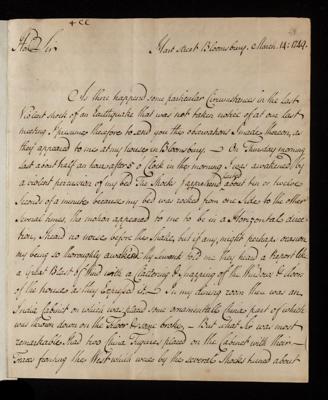 +cc
Hon.d Sir,
Hart street Bloomsbury, March. 14: 1749.
As there happend some particular Circumstances in the last
Violent shock of an Earthquake that was not taken notice of at our last
meeting I presume therefore to send you the observations I made thereon, as
they appeared to me at my house in Bloomsbury. – On Thursday morning
last about half an hour after 5 o Clock in the morning I was awakened by
a violent percussion of my bed The Shocks I apprehend about ten or twelve
Seconds of a minute because my bed was rocked from one Side to the other
Several times, the motion appeared to me to be in a Horizontal direc
tion, I heard no noise before the Shake, but if any, might perhaps occasion
my being so thoroughly awakened My servants told me they heard a Report like
a great Blast of Wind with a Clattering & snapping of the Windows & doors
of the houses as they Expressed it – In my dining room there was an
India Cabinet on which was placed some ornamentall China part of which
was thrown down on the Floor & some broke, – But what Sir was most
remarkable I had two China Figures placed on the Cabinet with their –
Faces fronting the West which were by the several Shocks turned about